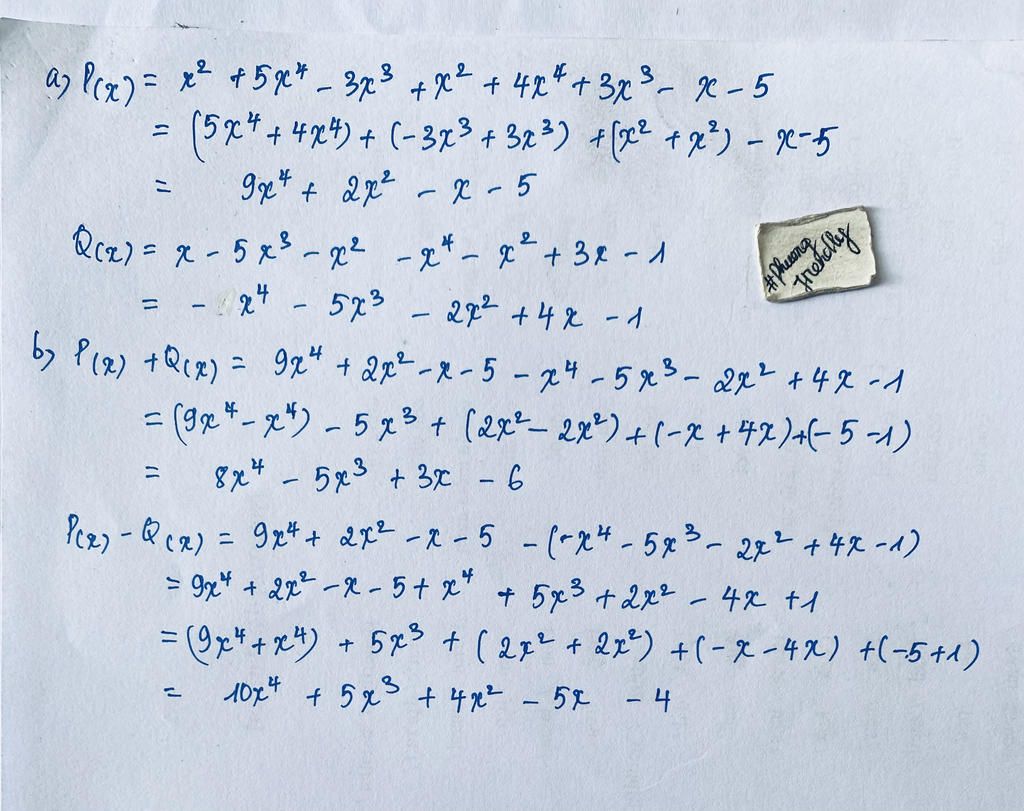 a) P(x) = x² + 5x⁴ - 3x³ + x² + 4x⁴ + 3x³ - x - 5
= (5x⁴ + 4x⁴) + (-3x³ + 3x³) + (x² + x²) - x - 5
= 9x⁴ + 2x² - x - 5
Q(x) = x - 5x³ - x² - x⁴ - x² + 3x - 1
= - x⁴ - 5x³ - 2x² + 4x - 1
#Phuong
b) P(x) + Q(x) = 9x⁴ + 2x² - x - 5 - x⁴ - 5x³ - 2x² + 4x - 1
= (9x⁴ - x⁴) - 5x³ + (2x² - 2x²) + (-x + 4x) + (-5 - 1)
= 8x⁴ - 5x³ + 3x - 6
P(x) - Q(x) = 9x⁴ + 2x² - x - 5 - (-x⁴ - 5x³ - 2x² + 4x - 1)
= 9x⁴ + 2x² - x - 5 + x⁴ + 5x³ + 2x² - 4x + 1
= (9x⁴ + x⁴) + 5x³ + (2x² + 2x²) + (-x - 4x) + (-5 + 1)
= 10x⁴ + 5x³ + 4x² - 5x - 4